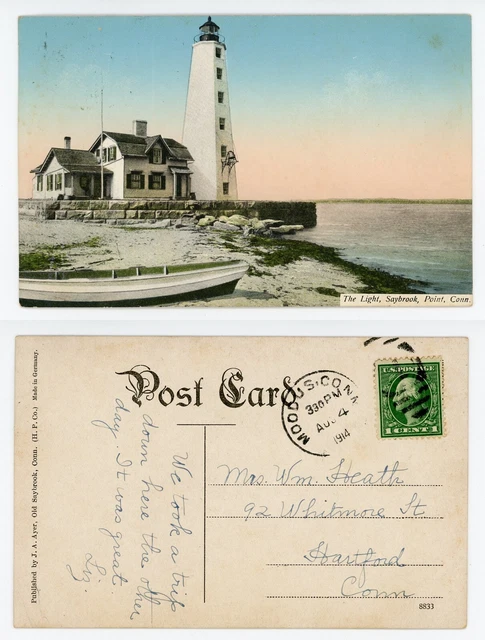 The Light, Saybrook, Point, Conn.
Post Card
MOODUS, CONN.
330 PM
AUG 4
1914
U.S. POSTAGE
1 CENT 1
We took a trip
down here the other
day. It was great.
Liz.
Mrs. Wm. Heath
92 Whitmore St
Hartford
Conn
Published by J. A. Ayer, Old Saybrook, Conn. (H. P. Co.) Made in Germany.
8833